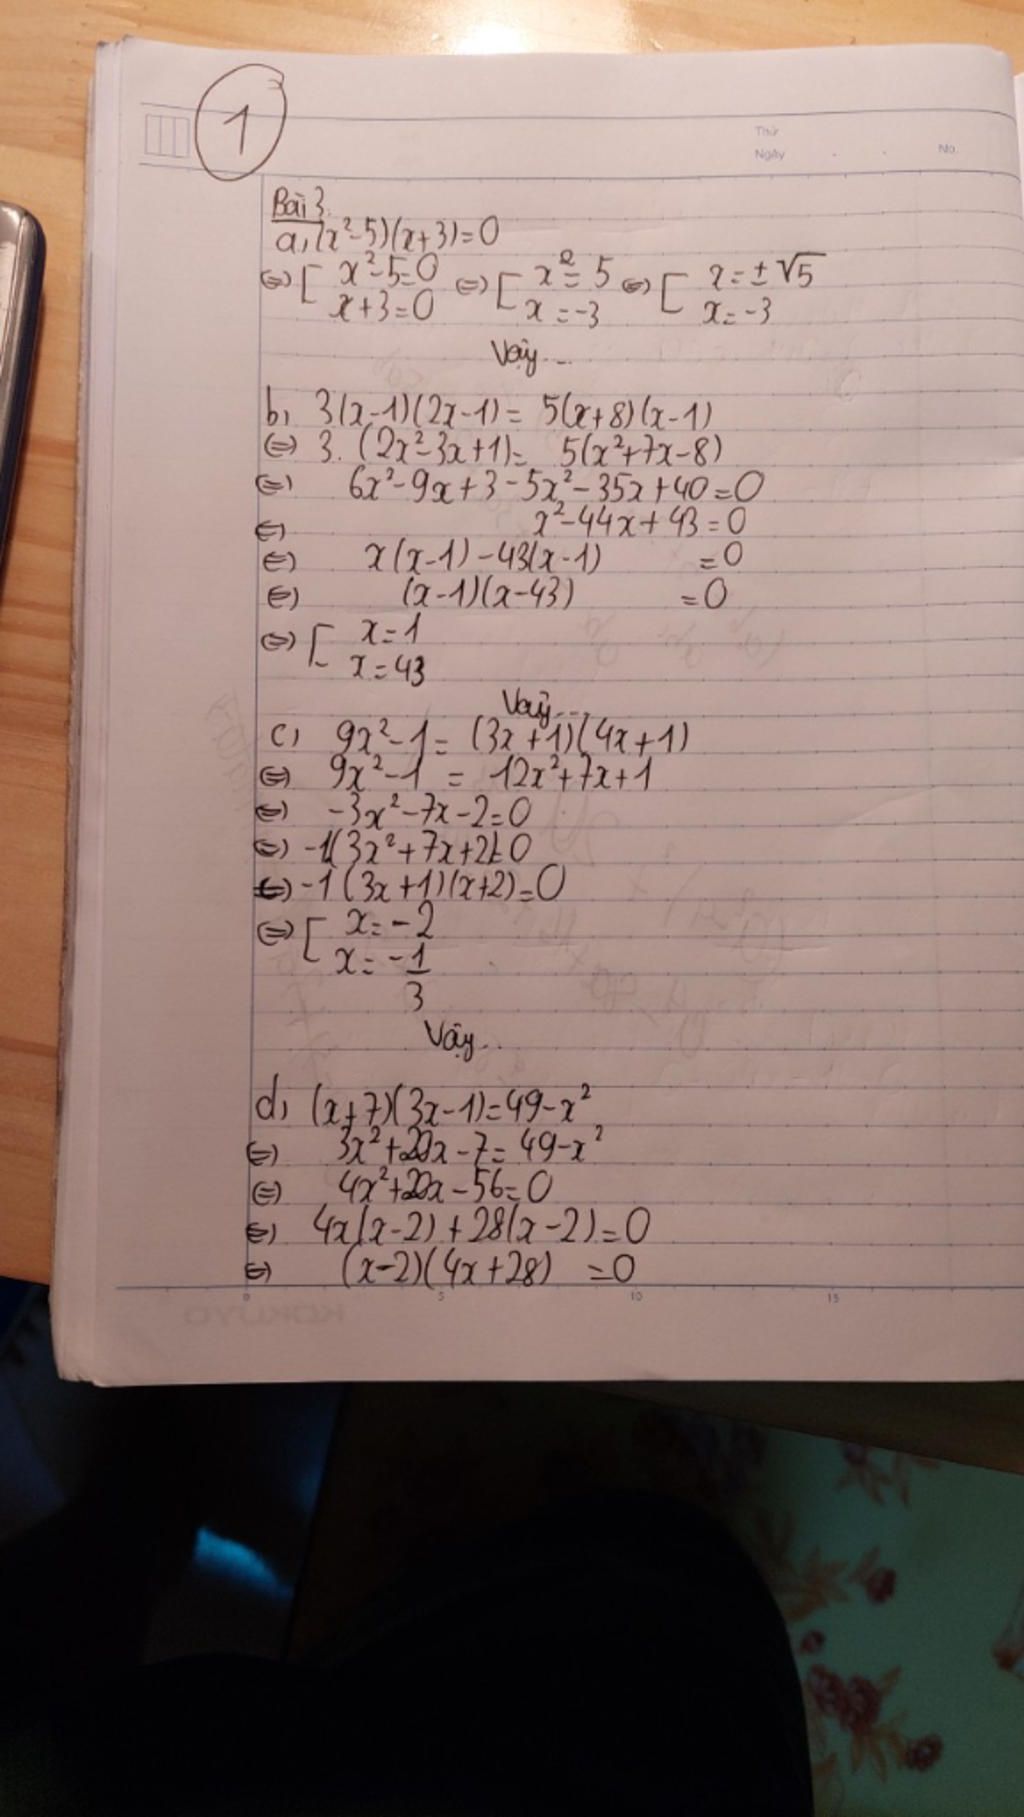 1
Thứ
Ngày
No.
Bài 3.
a, (x²-5)(x+3)=0
⇔ [ x²-5=0 ⇔ [ x²=5 ⇔ [ x=±√5
x+3=0 x=-3 x=-3
Vậy...
b, 3(x-1)(2x-1)= 5(x+8)(x-1)
⇔ 3.(2x²-3x+1)= 5(x²+7x-8)
⇔ 6x²-9x+3-5x²-35x+40=0
⇔ x²-44x+43=0
⇔ x(x-1)-43(x-1) =0
⇔ (x-1)(x-43) =0
⇔ [ x=1
x=43
Vậy...
c, 9x²-1= (3x+1)(4x+1)
⇔ 9x²-1 = 12x²+7x+1
⇔ -3x²-7x-2=0
⇔ -1(3x²+7x+2)=0
⇔ -1(3x+1)(x+2)=0
⇔ [ x=-2
x=-1/3
Vậy..
d, (x+7)(3x-1)=49-x²
⇔ 3x²+20x-7=49-x²
⇔ 4x²+20x-56=0
⇔ 4x(x-2)+28(x-2)=0
⇔ (x-2)(4x+28) =0
0 5 10 15